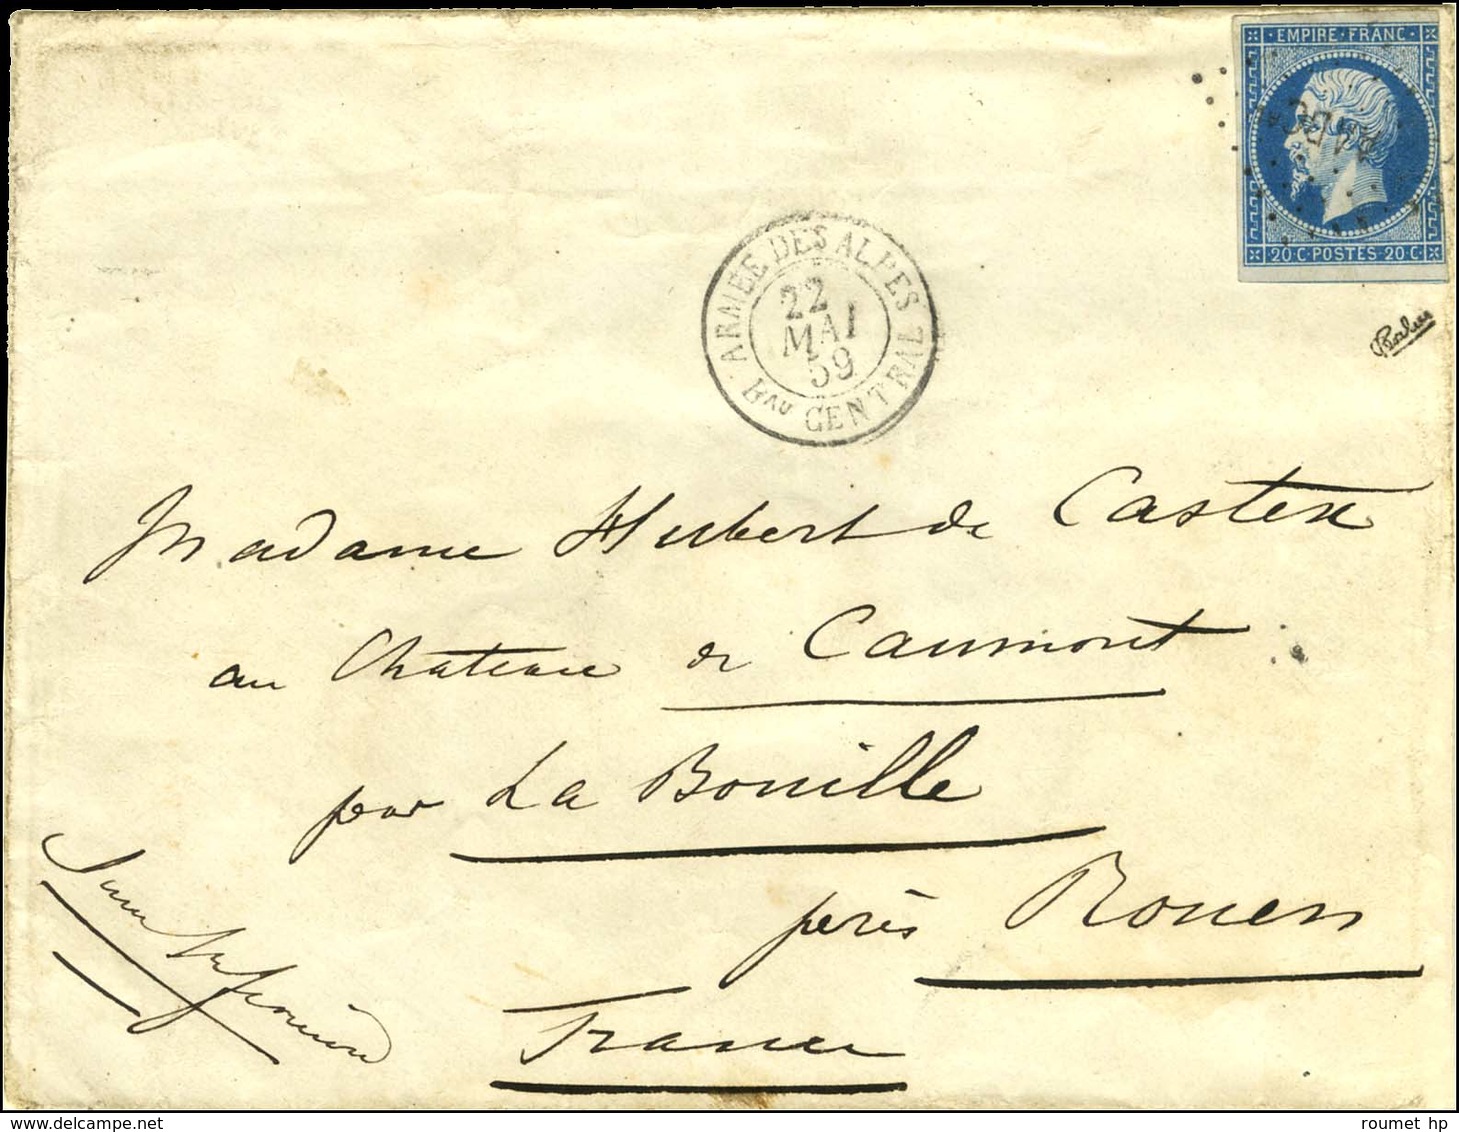 EMPIRE · FRANC ·
20 C · POSTES · 20 C ·
ARMÉE DES ALPES
22
MAI
59
Bau CENTRAL
Madame Hubert de Castex
au Château de Caumont
par La Bouille
près Rouen
France
Seine Inférieure
Calves
roumet hp